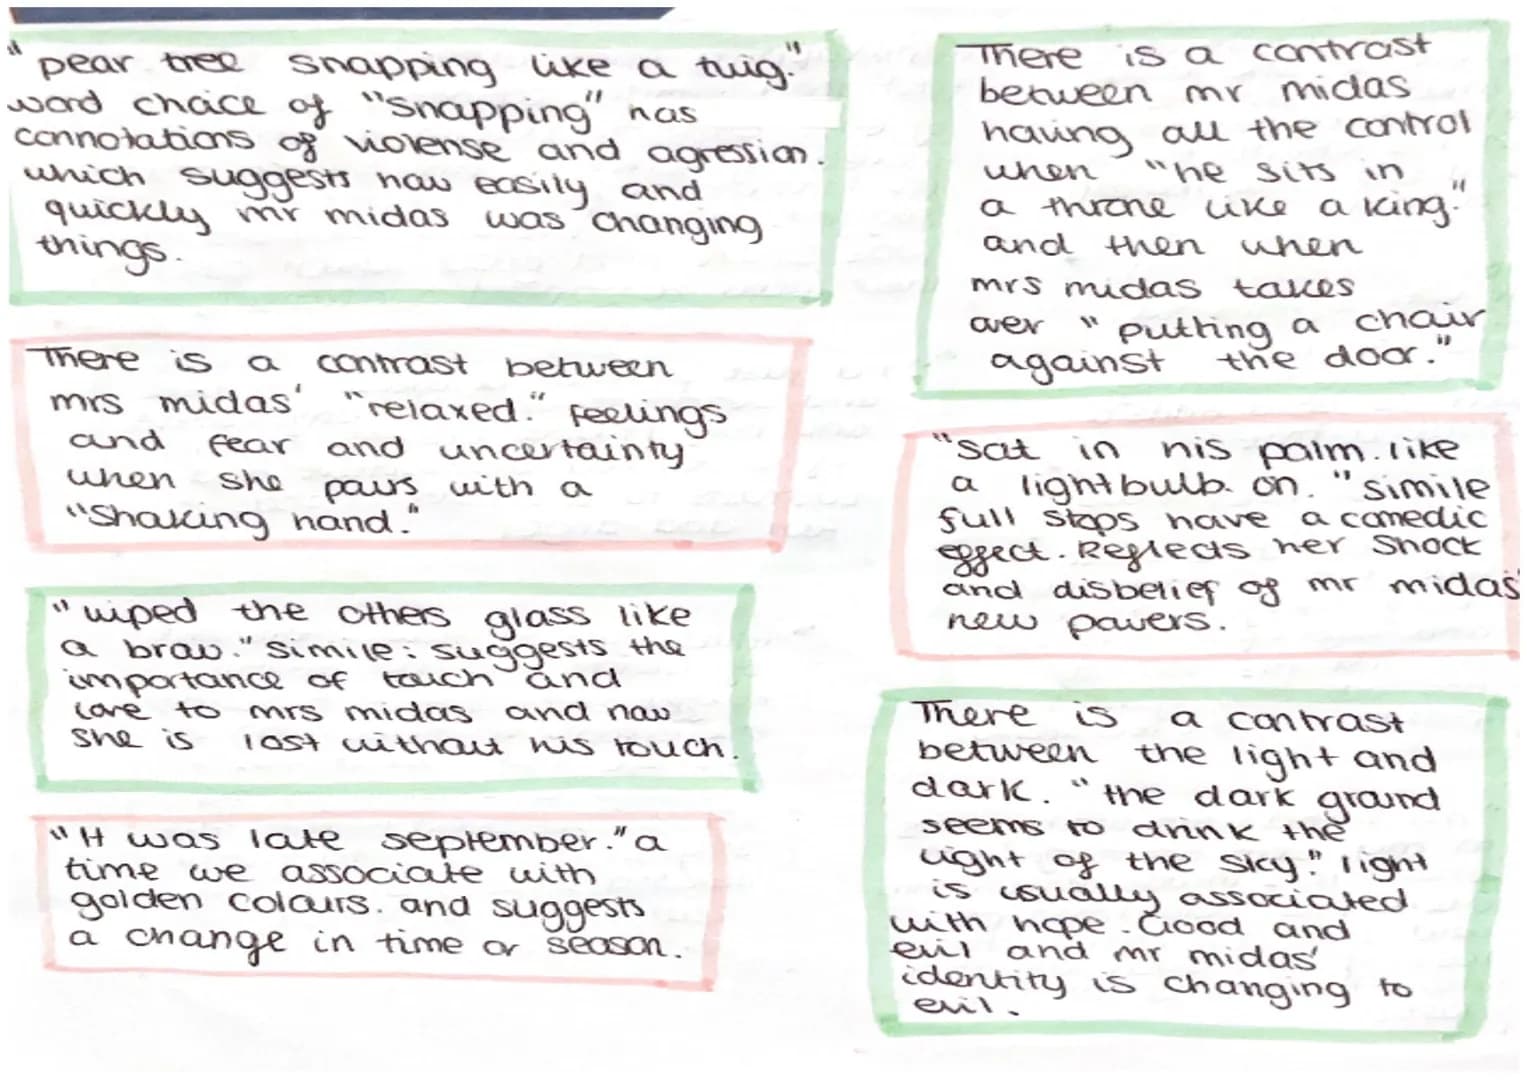 "pear tree snapping like a twig."
word choice of "snapping" has
connotations of violense and agression.
which suggests how easily and
quickly mr midas was changing
things.
There is a contrast between
mrs midas' "relaxed." feelings
and fear and uncertainty
when she pours with a
"Shaking hand."
"wiped the others glass like
a brow." simile: suggests the
importance of touch and
care to mrs midas and now
she is lost without his touch.
"It was late september." a
time we associate with
golden colours. and suggests
a change in time or season.
There is a contrast
between mr midas
having all the control
when "he sits in
a throne like a king."
and then when
mrs midas takes
over "putting a chair
against the door."
"sat in his palm. like
a lightbulb. on." simile
full stops have a comedic
effect. Reflects her shock
and disbelief of mr midas'
new powers.
There is a contrast
between the light and
dark. "the dark ground
seems to drink the
light of the sky." light
is usually associated
with hope. Good and
evil and mr midas'
identity is changing to
evil.